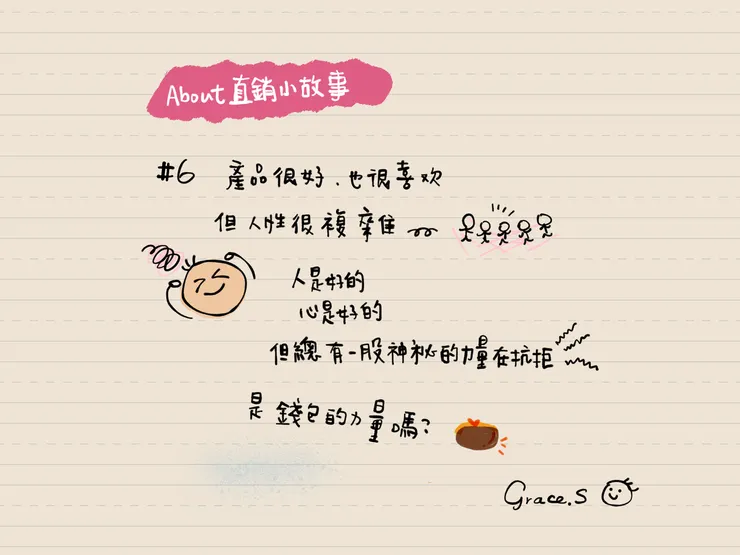 About直銷小故事
#6 產品很好、也很喜欢
但人性很複雜
人是好的
心是好的
但總有一股神祕的力量在抗拒
是錢包的力量嗎?
Grace.S